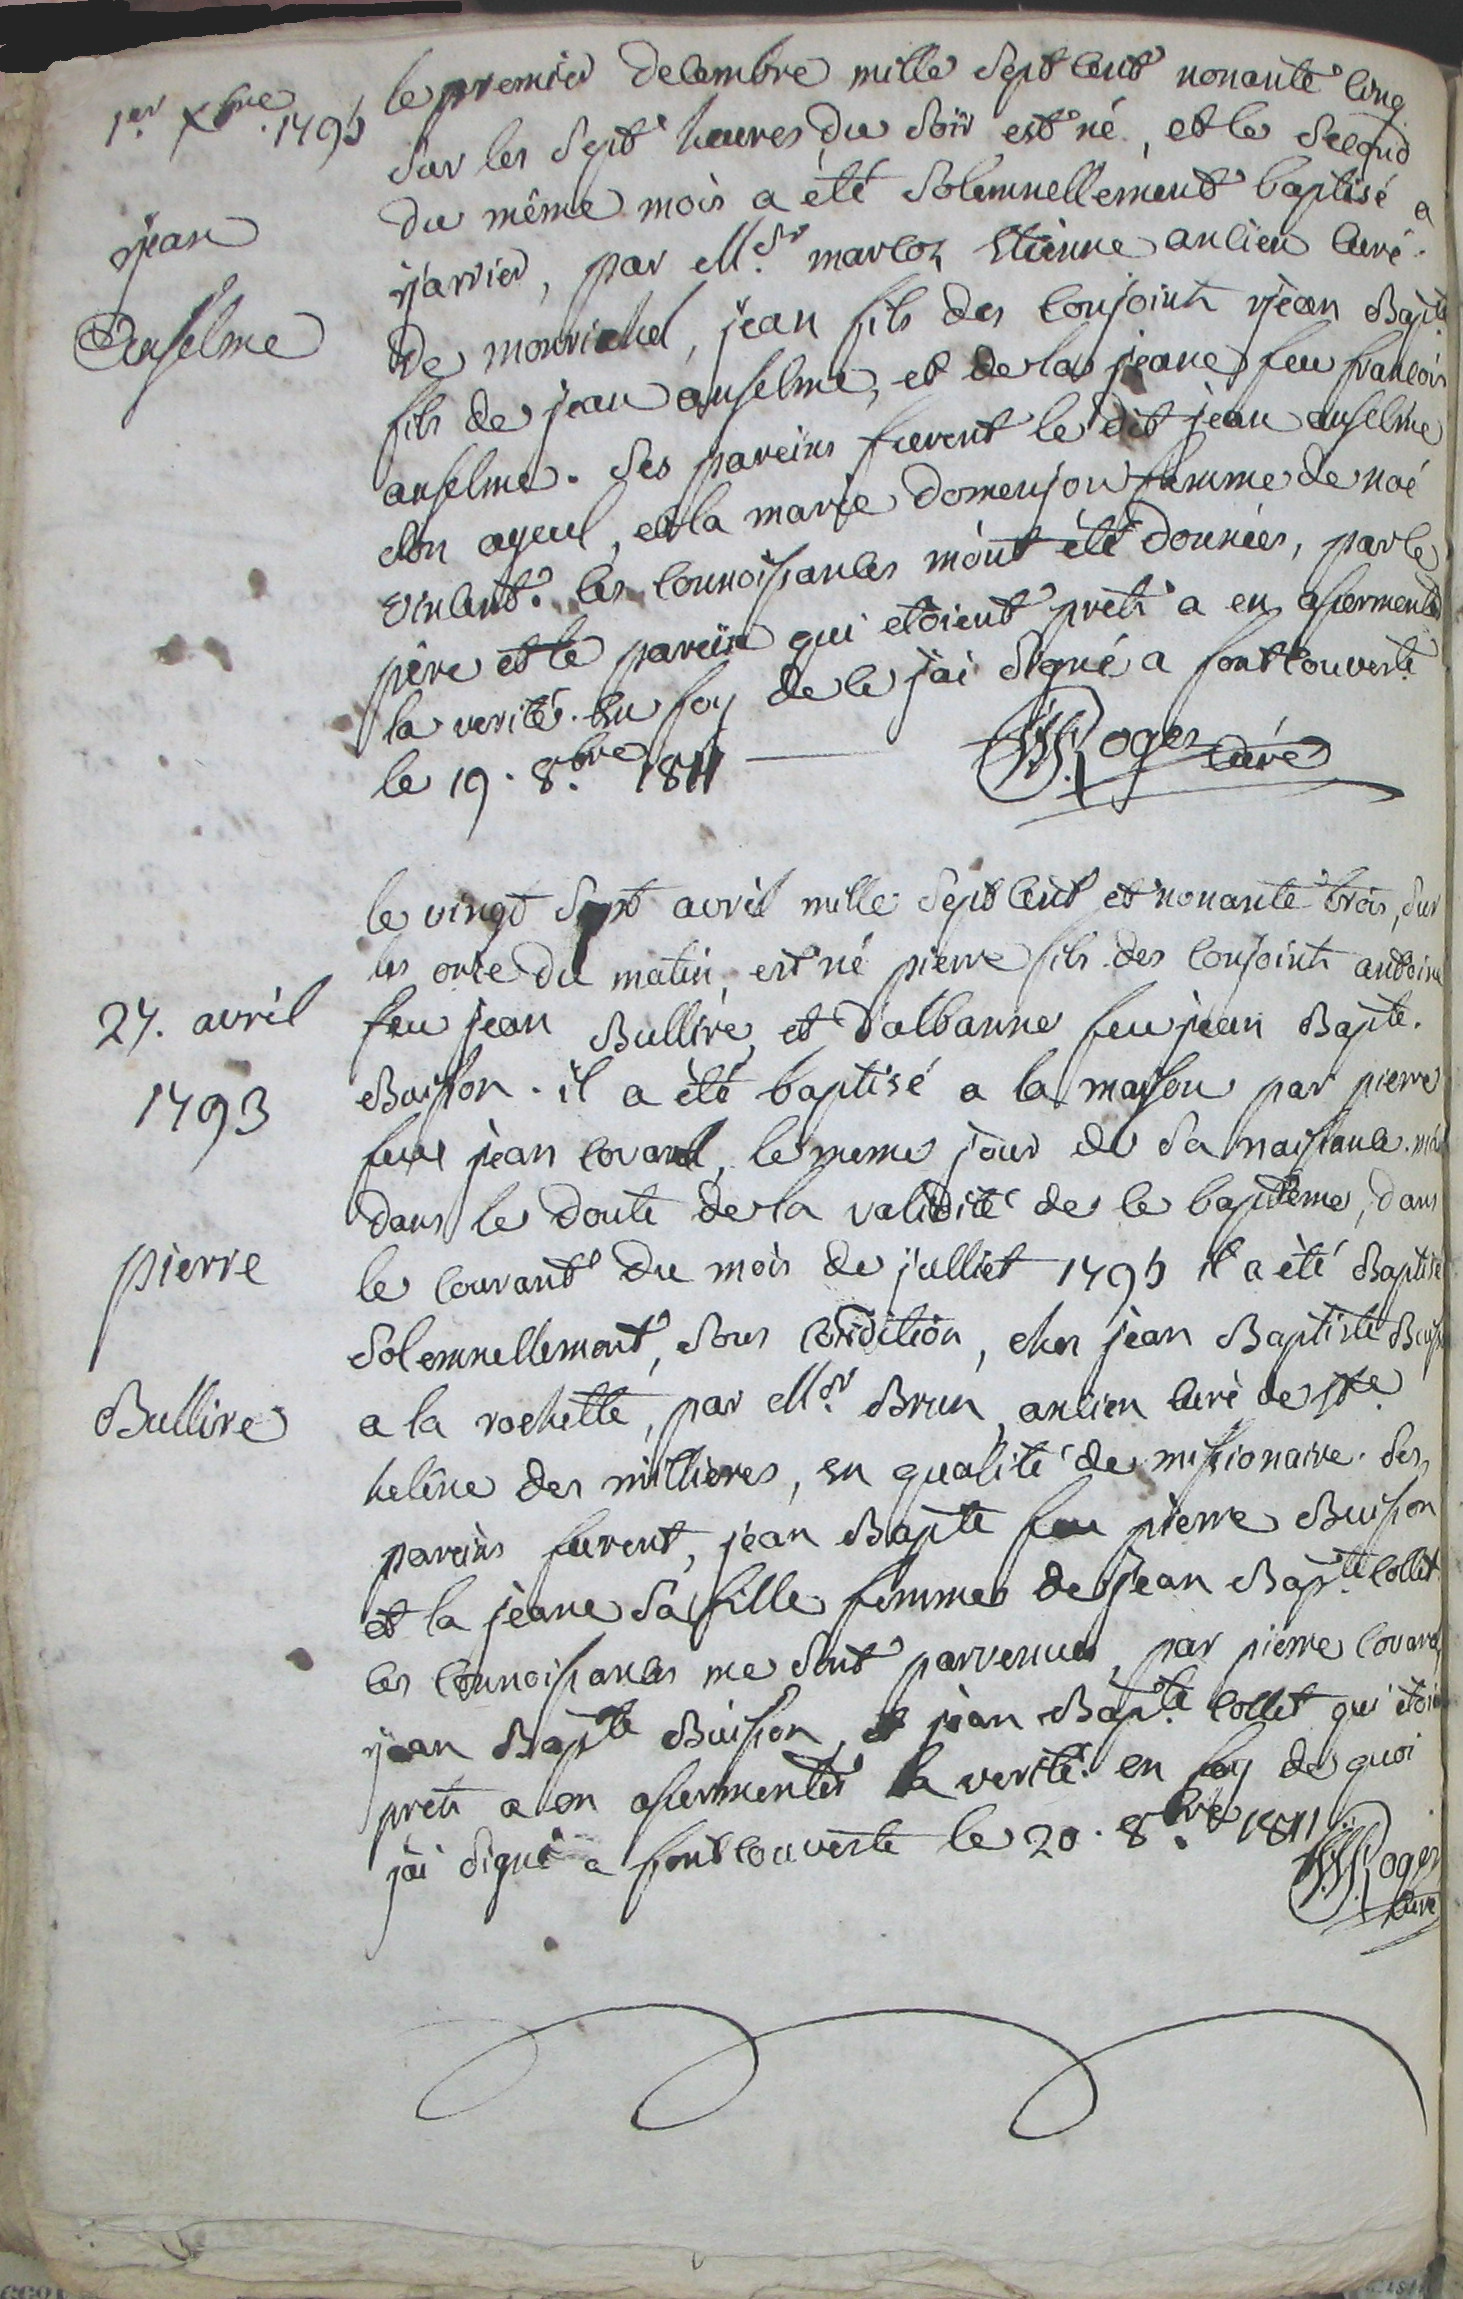 1er Xbre. 1795
jean
Anselme
le premier decembre mille sept cent nonante cinq
sur les sept heures du soir est né, et le second
du même mois a été solemnellement baptisé a
jarrier, par Mr. marcoz Etienne ancien curé
de montrichel, jean fils des conjoints jean Bapte
fils de jean anselme, et de la jeane feu francois
anselme. Ses pareins furent le dit jean anselme
son ayeul, et la marie domenjon femme de noé
vincent. les connoissances m'ont été données, par le
père et le parein qui etoient prèts a en assermenter
la verité. en foy de ce j'ai signé a fontcouverte
le 19. 8bre. 1811 Roger curé
27. avril
1793
pierre
Bullire
le vingt sept avril mille sept cent et nonante trois, sur
les onze du matin, est né pierre fils des conjoints antoine
feu jean Bullire, et d'albanne feu jean Bapte.
Buisson. il a été baptisé a la maison par pierre
feu jean covarel, le meme jour de sa naissance. mais
dans le doute de la validité de ce baptême, dans
le courant du mois de julliet 1795 il a été Baptisé
solemnellement, sous condition, chez jean Baptiste Buisson
a la rochette, par Mr. Brun, ancien curé de ste.
helène des millieres, en qualité de missionaire. ses
pareins furent, jean Bapte feu pierre Buisson
et la jeane sa fille femme de jean Bapte. collet
les connoissances me sont parvenues, par pierre covarel
jean Bapte Buisson, et jean Bapte. collet qui étoient
prèts a en assermenter la verité. en foy de quoi
j'ai signé a fontcouverte le 20. 8bre. 1811 Roger
curé